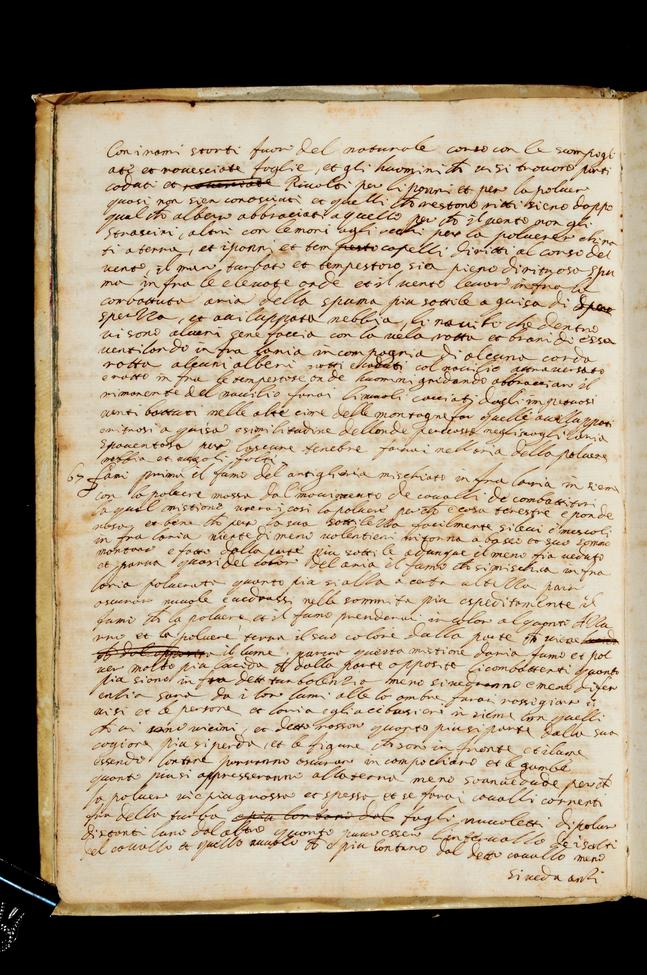 Con i rami storti fuori del naturale corso con le scompigli
ate et rovesciate foglie, et gli huomini ch vi si trovono parti
cadati et rivolti per li panni et per la polvere
quasi non sien conosciuti et quelli ch restono ritti sieno doppo
qualch albero abbracciati a quello per ch il vento non gli
strascini, altri con le mani agli occhi per la polvere china
ti a terra, et i panni et capelli diritti al corso del
vento, il mare turbato et tempestoso sia pieno di ritrosa spu
ma in fra le elevate onde et il vento levar in fra la
combattuta aria della spuma piu sottile a guisa di
spessa, et aviluppata nebbia, li navili che dentro
vi sono alcuni sene faccia con la vela rotta et brani d'essa
ventilando in fra l'aria in compagnia di alcuna corda
rotta alcuni alberi rotti caduti col navilio attraversato
e rotto in fra le tempestose onde huomini gridando abbracciare il
rimanente del navilio farai li nuvoli cacciati dagli impetuosi
venti battuti nelle alte cime delle montagne far quelli aviluppati
e ritrosi a guisa similitudine dell onde percosse negli scogli l'aria
spaventosa per l'oscure tenebre fatte nell aria della polvere
nebbia et nuvoli folti
67 Farai prima il fumo del artiglieria mischiato in fra l'aria in sieme
con la polvere mossa dal movimento de cavalli de combattitori
la qual mistione userai cosi la polvere per ch e cosa terestre e ponde
rosa et bene ch per la sua sottilezza facilmente si levi e mescoli
in fra l'aria niente di meno volentieri ritorna a basso et suo sommo
montare e fatto dalla parte piu sottile adunque il meno fia veduto
et parra quasi del color del aria il fumo ch si mischia in fra
l'aria polverata quanto piu s'alza a certa altezza parra
oscure nuvole e vedrassi nella sommita piu espeditamente il
fumo ch la polvere et il fumo prendera in color al quanto
et la polvere terra il suo colore dalla parte ch viene
il lume parra questa mistione d'aria fumo et pol
ver molto piu lucida ch dalla parte opposita li combattenti quanto
piu siono in fra detta turbolenzia meno si vedranno e meno differ
entia sara da i lor lumi alle lor ombre farai rosseggiare i
visi et le persone et l'aria e gli archibusieri in sieme con quelli
ch vi sono vicini et detto rossore quanto piu si parte dalla sua
cagione piu si perda, et le figure ch sono in fra te e il lume
essendo lontane parranno oscure in campo chiaro et le gambe
quanto piu si appresseranno alla terra meno sieno vedute per ch
la polvere vie piu grossa et spessa et se farai cavalli correnti
fuori della turba fa gli nuvoletti di polver
distanti l'uno dal altro quanto puo esser l'intervallo de i salti
del cavallo et quello nuvolo ch e piu lontano dal detto cavallo meno
si veda anzi